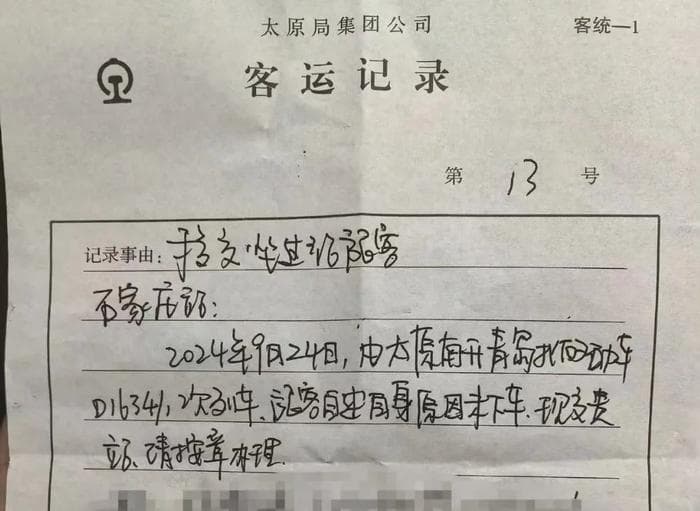 太原局集团公司 客统—1
客运记录
第 13 号
记录事由：移交坐过站旅客
石家庄站：
2024年9月24日，由太原南开青岛北的动车
D1634/1次列车、旅客自述自身原因未下车、现交贵
站、请按章办理